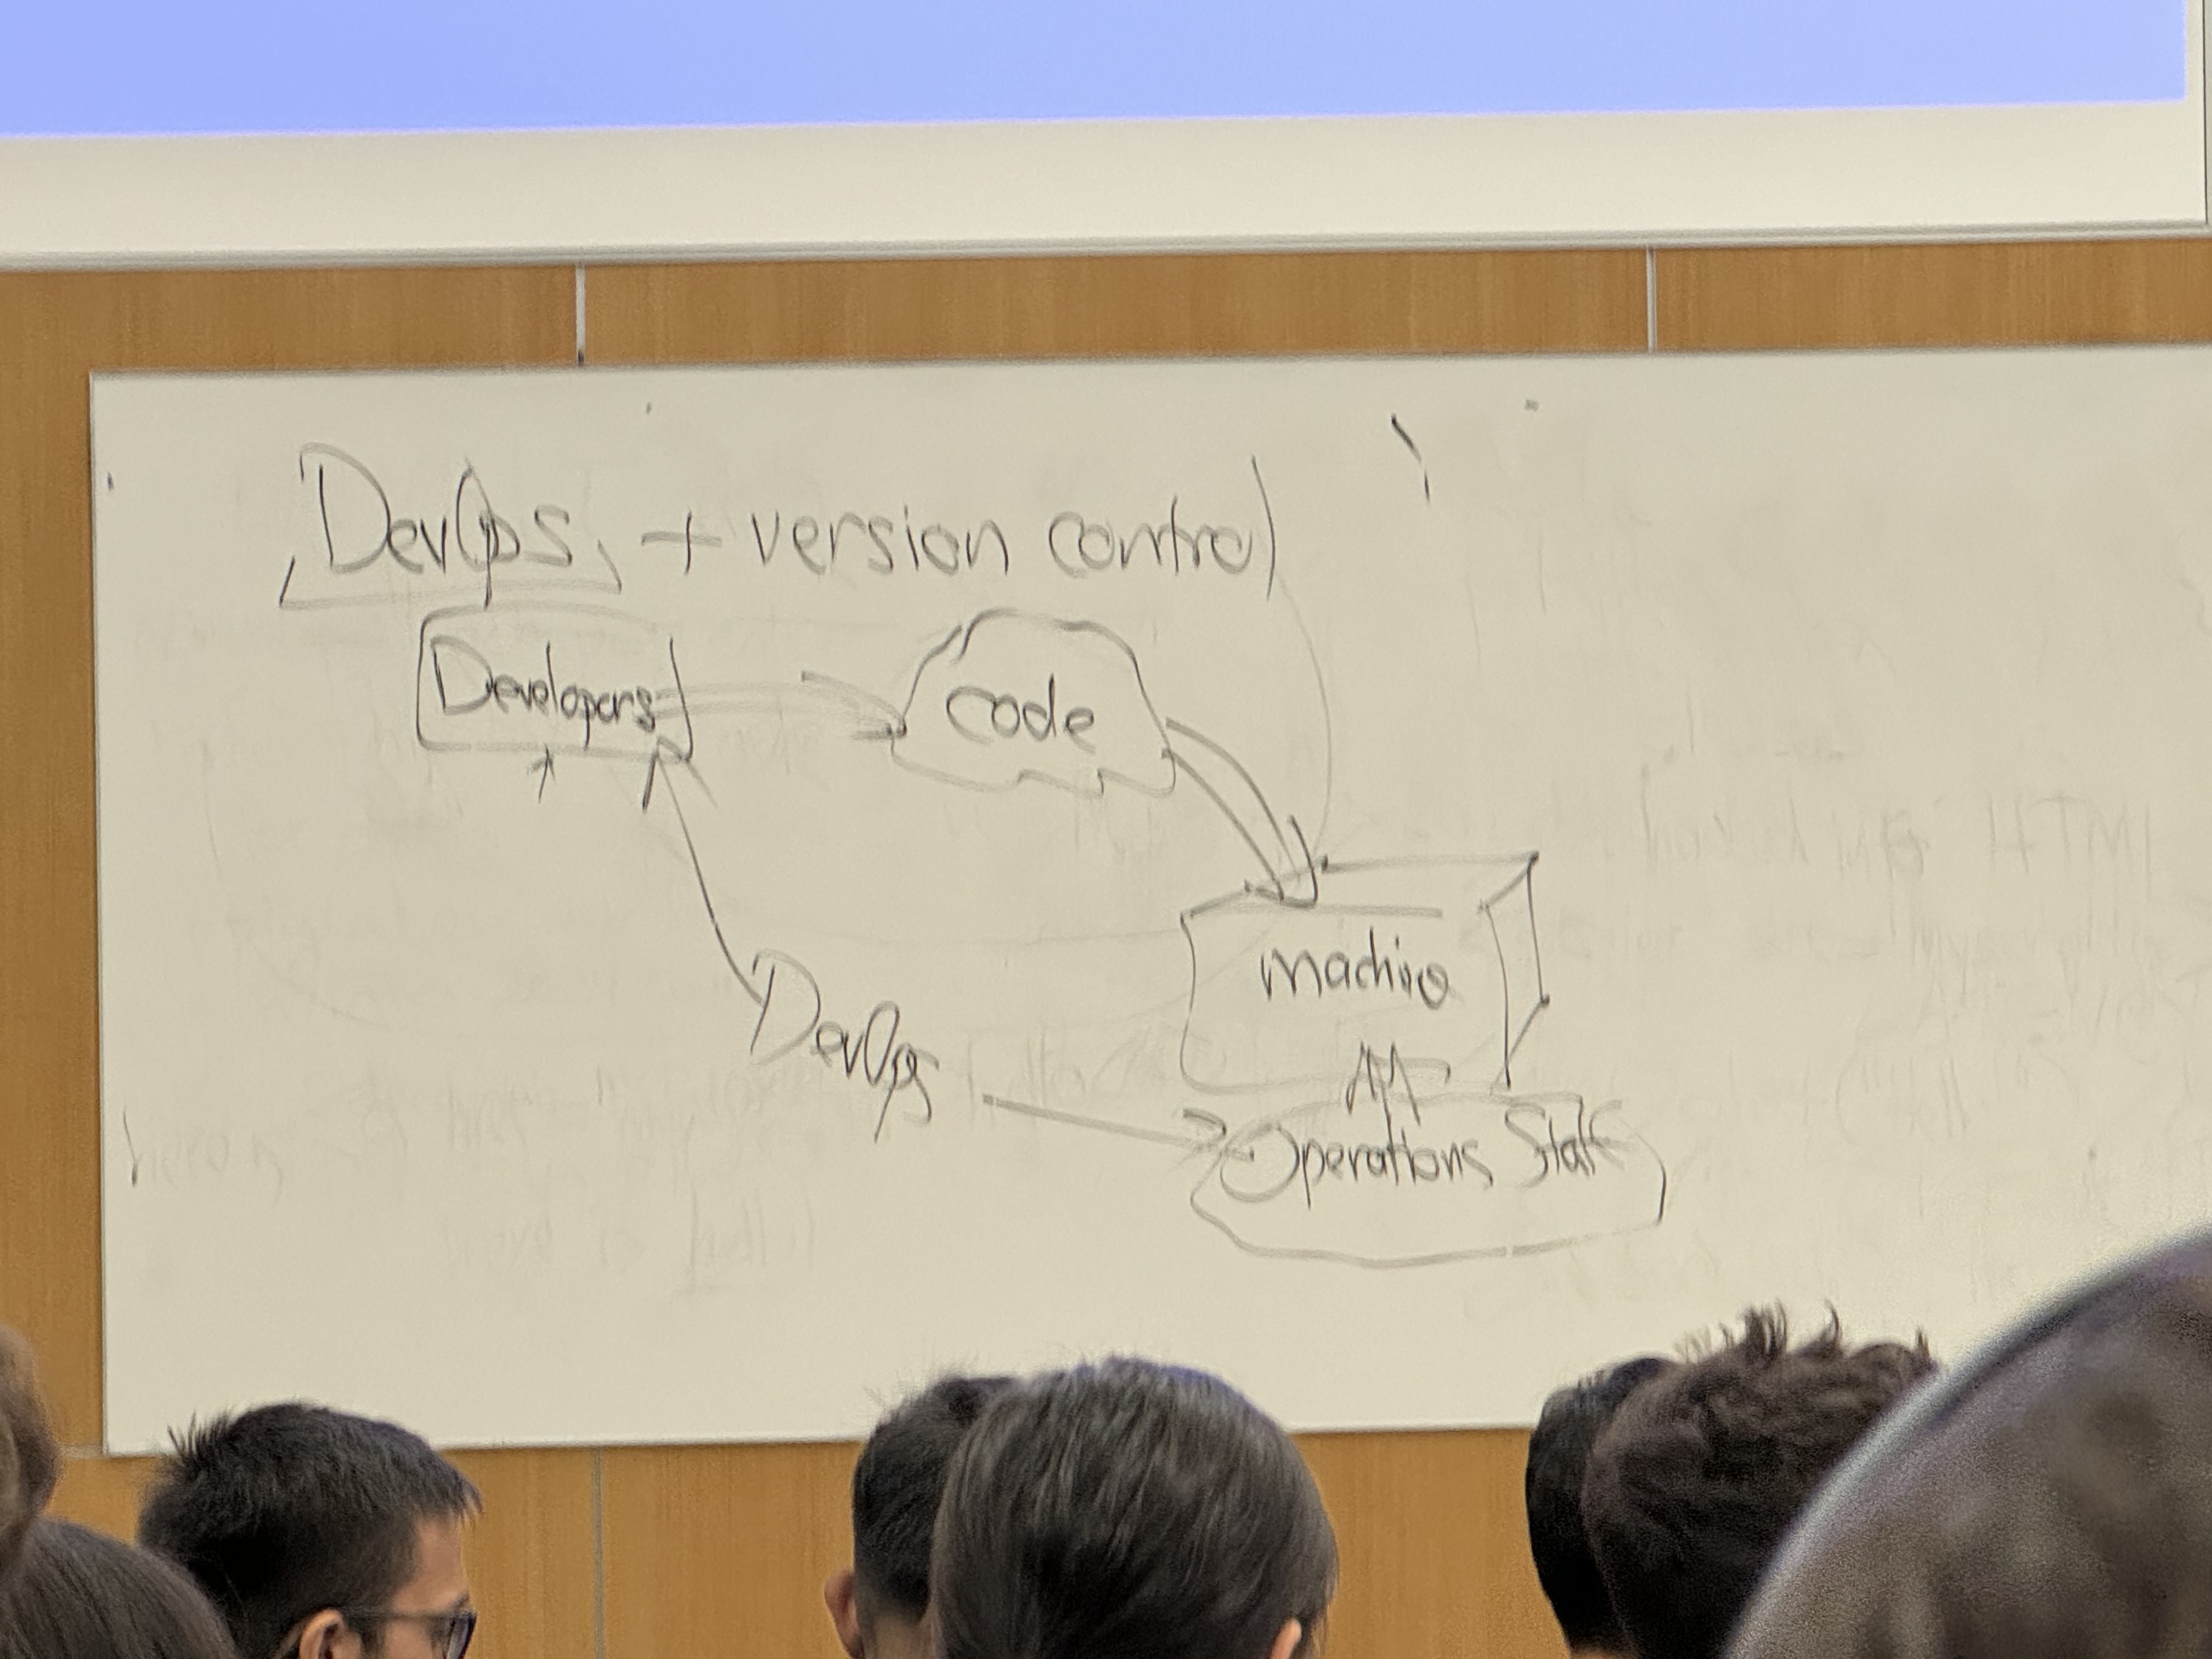 DevOps + version control
Developers
code
machine
DevOps
Operations Staff